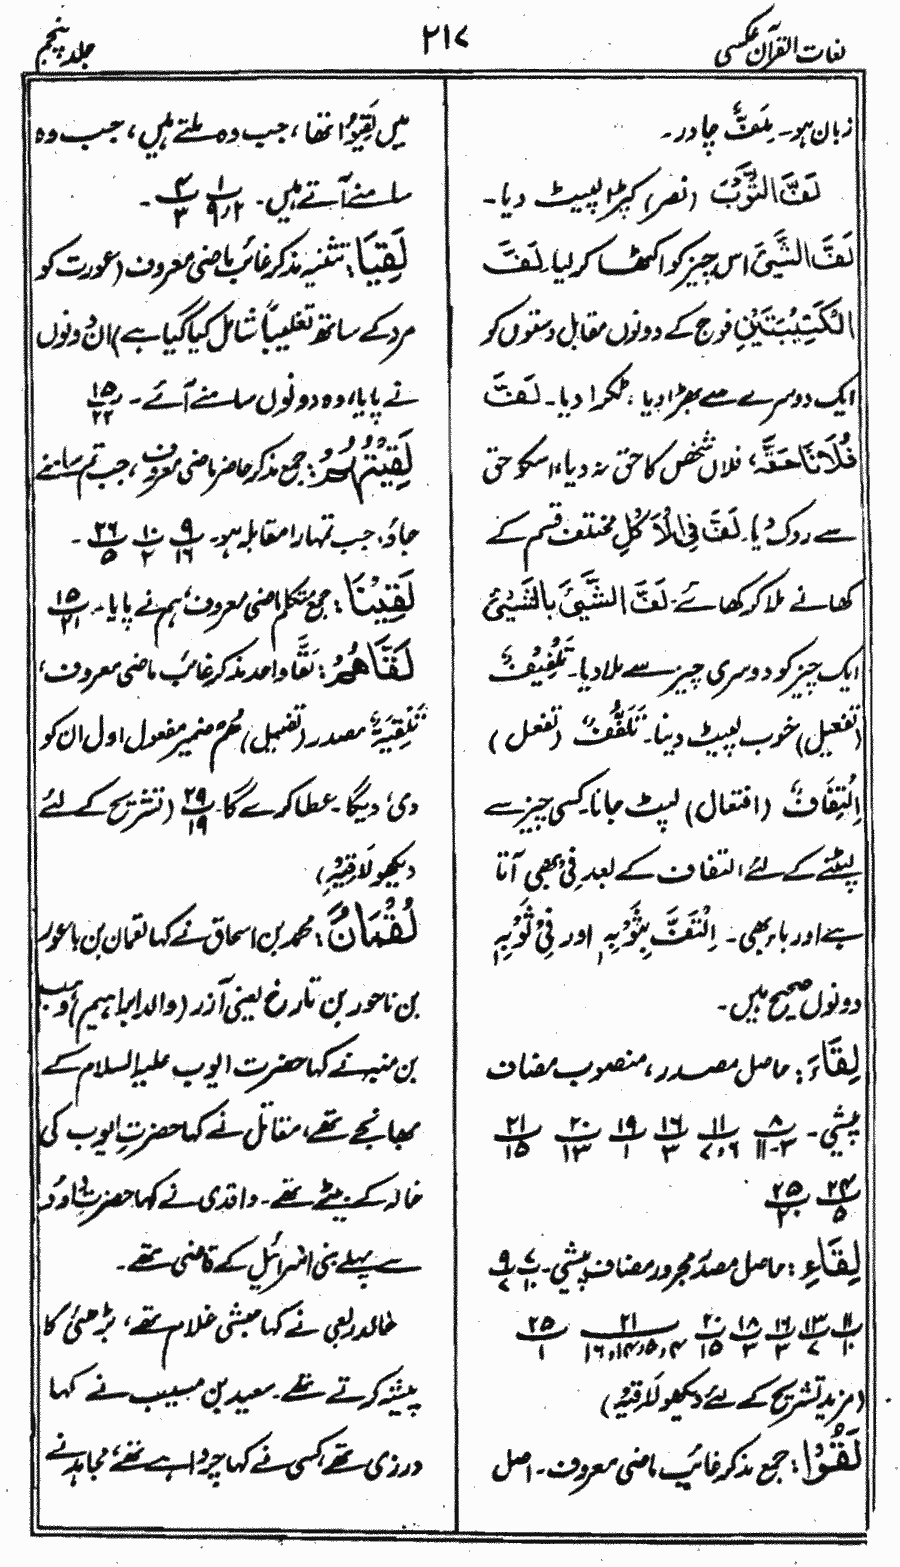 لغات القرآن عکسی
۲۱۷
جلد پنجم
زبان ہو۔ مِلَفٌّ چادر۔
لَفَّ الثَّوْبَ (نصر) کپڑا لپیٹ دیا۔
لَفَّ الشَّیْءَ اس چیز کو اکٹھا کر لیا۔ لَفَّ
الْکَتِیْبَتَیْنِ فوج کے دونوں مقابل دستوں کو
ایک دوسرے سے بھڑا دیا، ٹکرا دیا۔ لَفَّ
فُلَانًا حَقَّہٗ، فلاں شخص کا حق نہ دیا، اسکو حق
سے روک دیا۔ لَفَّ فِی الْاَکْلِ مختلف قسم کے
کھانے ملا کر کھائے۔ لَفَّ الشَّیْءَ بِالشَّیْءِ
ایک چیز کو دوسری چیز سے ملا دیا۔ تَلْفِیْفٌ
(تفعیل) خوب لپیٹ دینا۔ تَلَفُّفٌ (تفعل)
اِلْتِفَافٌ (افتعال) لپٹ جانا۔ کسی چیز سے
لپٹنے کے لئے التفاف کے بعد فِیْ بھی آتا
ہے اور باء بھی۔ اِلْتَفَّ بِثَوْبِہٖ اور فِیْ ثَوْبِہٖ
دونوں صحیح ہیں۔
لِقَاءَ: حاصل مصدر، منصوب مضاف
پیشی۔ ۸/۳-۱۱ ۱۱/۷،۶ ۱۶/۳ ۱۹/۱ ۲۰/۱۳ ۲۱/۱۵
۲۴/۵ ۲۵/۲۰
لِقَاءِ: حاصل مصدر مجرور مضاف پیشی۔ ۷/۱۰ ۹/۷
۱۱/۱۰ ۱۳/۷ ۱۶/۳ ۱۸/۳ ۲۰/۱۵ ۲۱/۴،۵،۱۴،۱۶ ۲۵/۱
(مزید تشریح کے لئے دیکھو لَاقِیْہِ)
لَقُوْا: جمع مذکر غائب ماضی معروف۔ اصل
میں لَقِیُوْا تھا، جب وہ ملتے ہیں، جب وہ
سامنے آتے ہیں۔ ۱/۹،۲ ۴/۳۔
لَقِیَا: تثنیہ مذکر غائب ماضی معروف (عورت کو
مرد کے ساتھ تغلیباً شامل کیا گیا ہے) ان دونوں
نے پایا، وہ دونوں سامنے آئے۔ ۱۵/۲۲
لَقِیْتُمُ: جمع مذکر حاضر ماضی معروف، جب تم سامنے
جاؤ، جب تمہارا مقابلہ ہو۔ ۹/۱۶ ۱۰/۲ ۲۶/۵۔
لَقِیْنَا: جمع متکلم ماضی معروف، ہم نے پایا۔ ۱۵/۲۱
لَقّٰاهُمْ: لَقّٰا واحد مذکر غائب ماضی معروف،
تَلْقِیَۃٌ مصدر (تفعیل) هُمْ ضمیر مفعول اول ان کو
دی، دیگا۔ عطا کرے گا۔ ۲۹/۱۹ (تشریح کے لئے
دیکھو لَاقِیْہِ)
لُقْمَانُ: محمد بن اسحاق نے کہا لقمان بن باعور
بن ناحور بن تارخ یعنی آزر (والد ابراہیم) وہب
بن منبہ نے کہا حضرت ایوب علیہ السلام کے
بھانجے تھے، مقاتل نے کہا حضرت ایوب کی
خالہ کے بیٹے تھے۔ واقدی نے کہا حضرت داؤد
سے پہلے بنی اسرائیل کے قاضی تھے۔
خالد ربعی نے کہا حبشی غلام تھے، بڑھئی کا
پیشہ کرتے تھے۔ سعید بن مسیب نے کہا
درزی تھے، کسی نے کہا چرواہے تھے، مجاہد نے